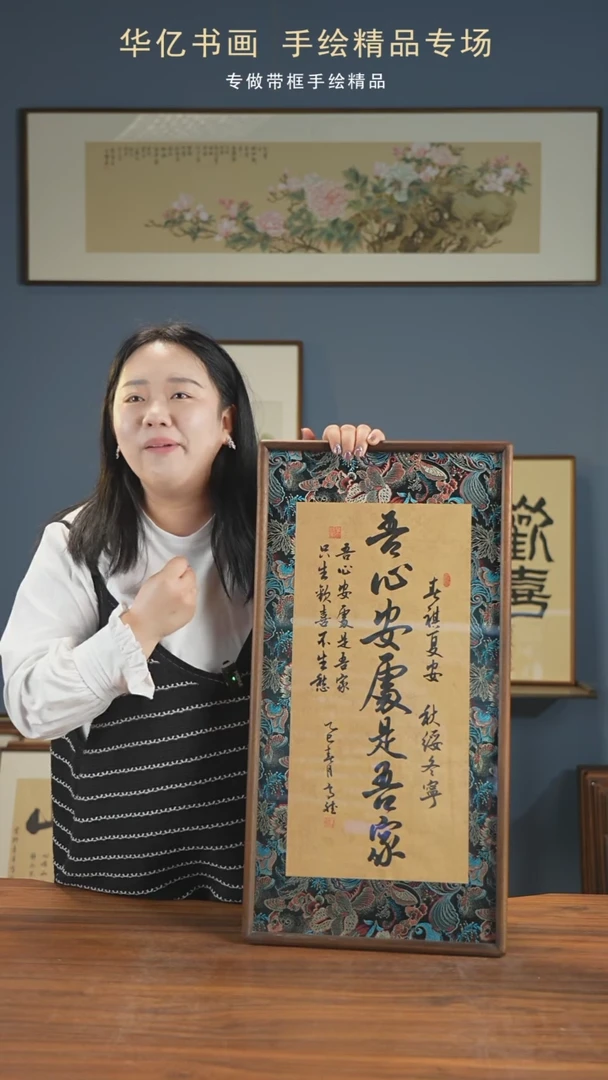 华亿书画 手绘精品专场
专做带框手绘精品
春祺夏安 秋绥冬宁
吾心安處是吾家
吾心安處是吾家
只生歡喜不生愁
乙巳春月
歡喜
山